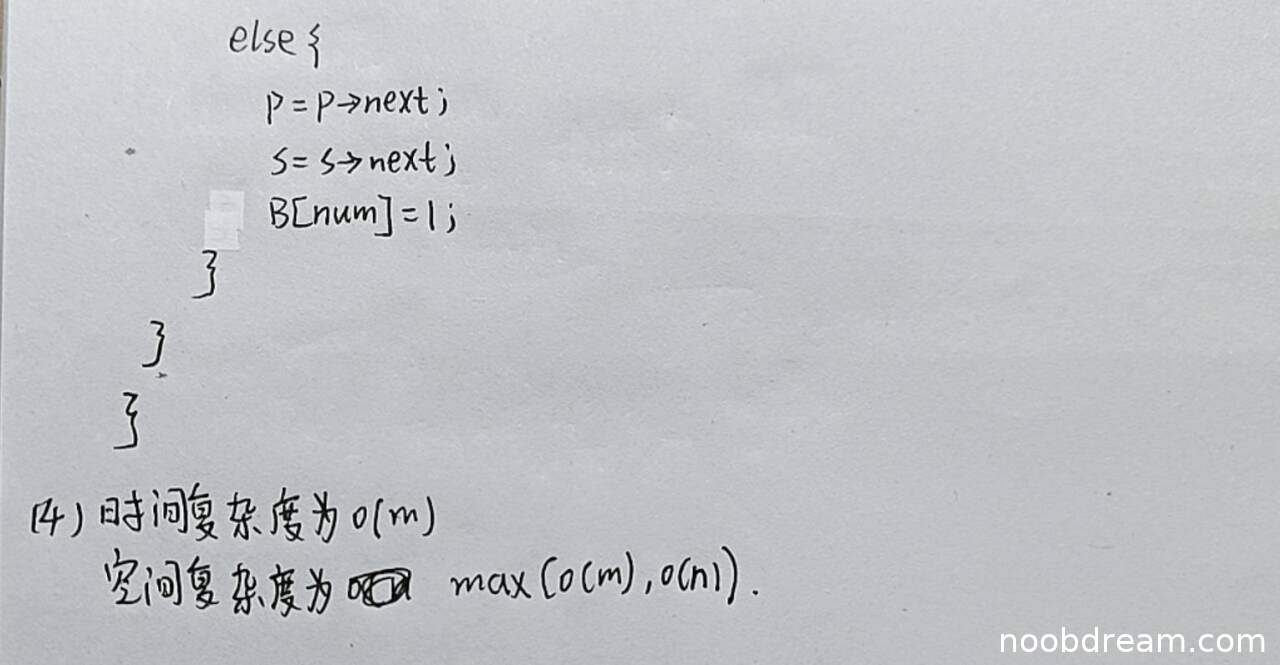 else {
p = p→next;
s = s→next;
B[num] = 1;
}
}
}
(4) 时间复杂度为 O(m)
空间复杂度为 max(O(m), O(n)).
noobdream.com